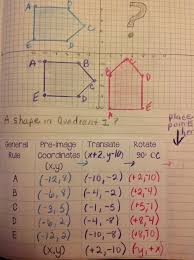 A B C D E
?
A B C D E
A B C D E
A shape in Quadrant I?
place points here
General Rule Pre-image Coordinates (x,y) Translate (x+2, y-10) Rotate 90° CC
A (-12, 8) (-10, -2) (+2, -10)
B (-6, 8) (-4, -2) (+2, -4)
C (-3, 5) (-1, -5) (+5, -1)
D (-6, 2) (-4, -8) (+8, -4)
E (-12, 2) (-10, -8) (+8, -10)
(x,y) (+2, -10) (-y, +x)